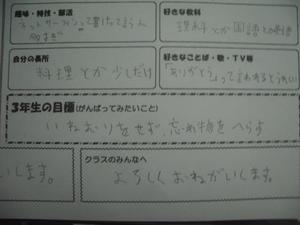 趣味・特技・部活
ネットサーフィンって書けてうん
好きな教科
理科とか国語とか
自分の長所
料理とか少しだけ
好きなことば・歌・TV等
「ありがとう」って言われるとうれしい
3年生の目標(がんばってみたいこと)
いねむりをせず、忘れ物をへらす
いします。
クラスのみんなへ
よろしくおねがいします。